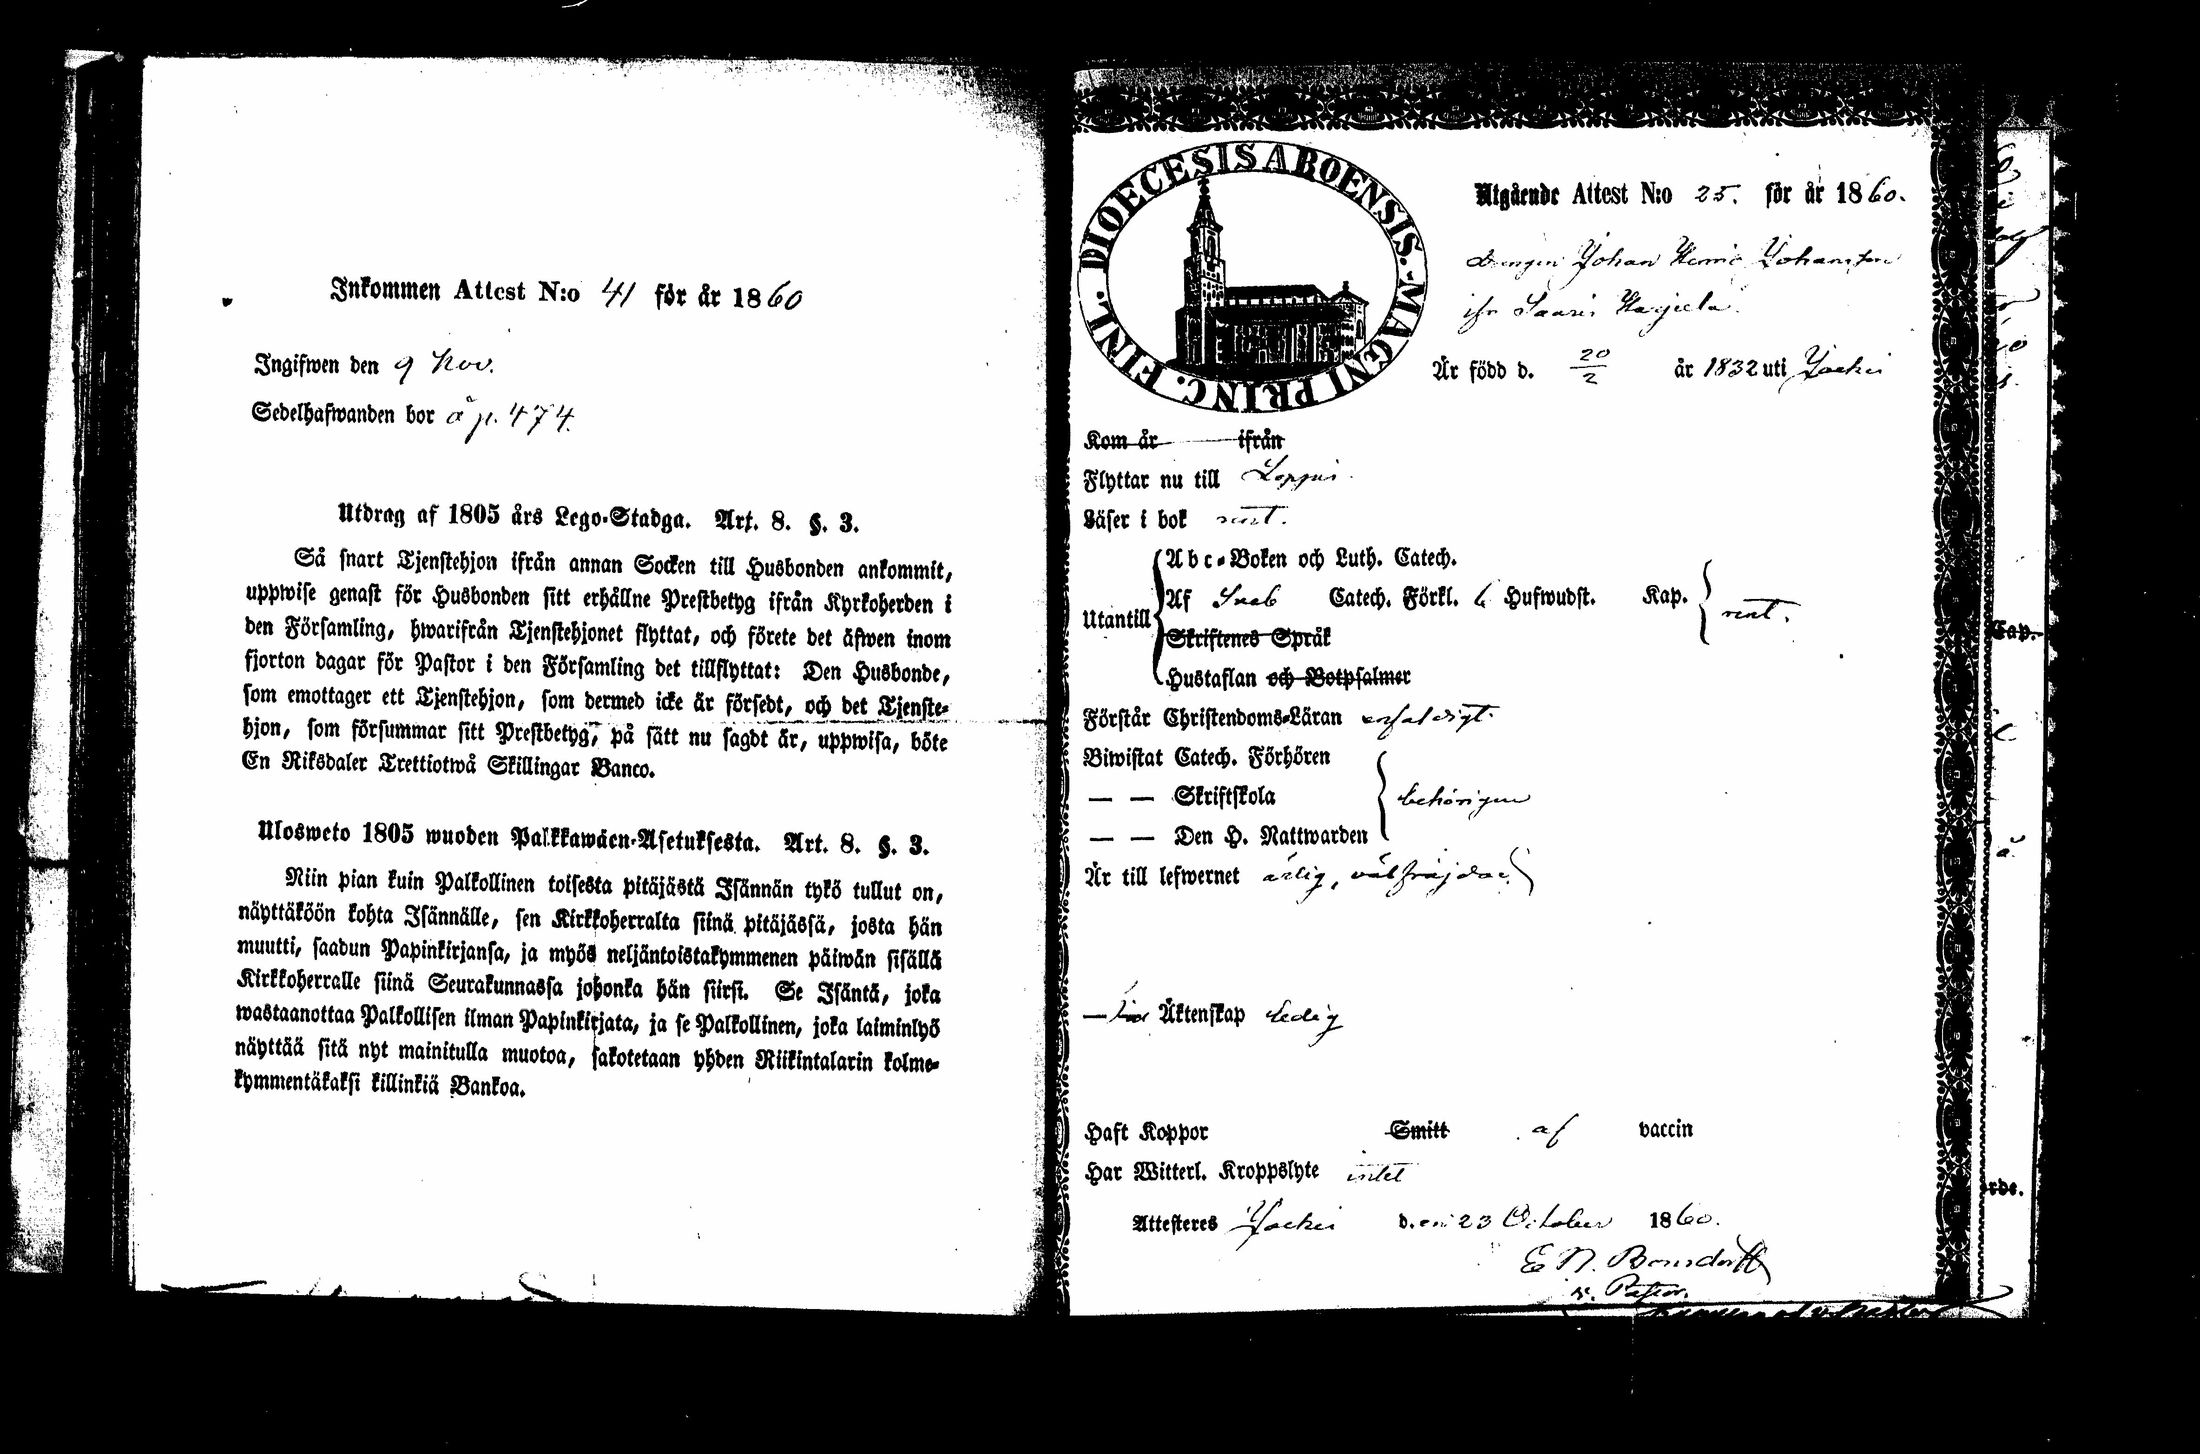 Inkommen Attest N:o 41 för år 1860
Ingifwen den 9 Nov.
Sedelhafwanden bor å p. 474.
Utdrag af 1805 års Lego-Stadga. Art. 8. §. 3.
Så snart Tjenstehjon ifrån annan Socken till Husbonden ankommit,
uppwise genast för Husbonden sitt erhållne Prestbetyg ifrån Kyrkoherden i
den Församling, hwarifrån Tjenstehjonet flyttat, och förete det äfwen inom
fjorton dagar för Pastor i den Församling det tillflyttat: Den Husbonde,
som emottager ett Tjenstehjon, som dermed icke är försedt, och det Tjenste-
hjon, som försummar sitt Prestbetyg, på sätt nu sagdt är, uppwisa, böte
En Riksdaler Trettiotwå Skillingar Banco.
Ulosweto 1805 wuoden Palkkawäen-Asetuksesta. Art. 8. §. 3.
Niin pian kuin Palkollinen toisesta pitäjästä Isännän tykö tullut on,
näyttäköön kohta Isännälle, sen Kirkkoherralta siinä pitäjässä, josta hän
muutti, saadun Papinkirjansa, ja myös neljäntoistakymmenen päiwän sisällä
Kirkkoherralle siinä Seurakunnassa johonka hän siirsi. Se Isäntä, joka
wastaanottaa Palkollisen ilman Papinkirjata, ja se Palkollinen, joka laiminlyö
näyttää sitä nyt mainitulla muotoa, sakotetaan yhden Riikintalarin kolme-
kymmentäkaksi killinkiä Bankoa.
DIOECESIS ABOENSIS. MAGNI PRINC. FINL.
Utgående Attest N:o 25. för år 1860.
Drengen Johan Henric Johansson
ifr Saaris Harjula.
Är född d. 20/2 år 1832 uti Jockis
Kom år ifrån
Flyttar nu till Loppis.
Läser i bok rent.
Abc-Boken och Luth. Catech.
Utantill Af Sveb Catech. Förkl. 6 Hufwudst. Kap. rent.
Skriftenes Språk
Hustaflan och Botpsalmer
Förstår Christendoms-Läran enfaldigt.
Biwistat Catech. Förhören
— — Skriftskola behörigen
— — Den H. Nattwarden
Är till lefwernet ärlig, välfräjdad
— Äktenskap ledig
Haft Koppor Smitt af vaccin
Har Witterl. Kroppslyte intet
Attesteres Jockis d. en 23 October 1860.
E N. Bonsdorff
v. Pastor.
Cap.
rde.